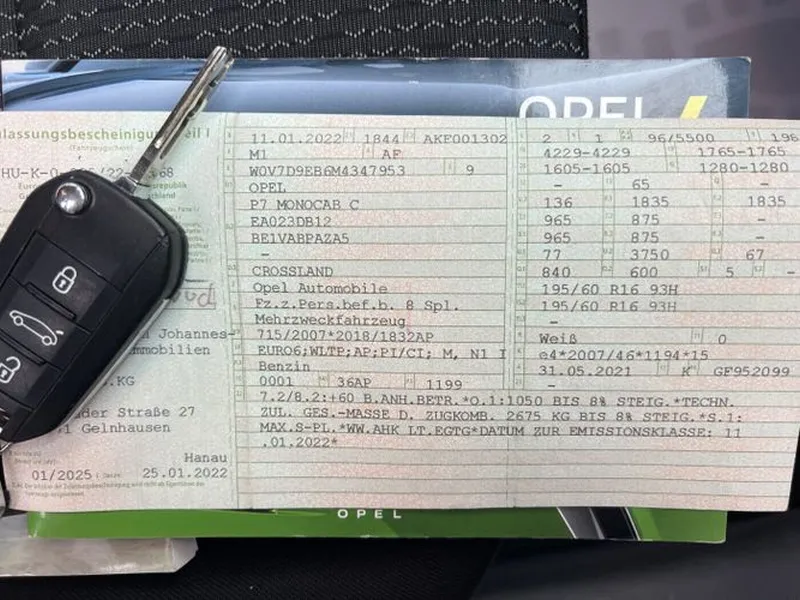 OPEL
lassungsbescheinigung Teil I
(Fahrzeugschein)
HU-K-O 68
11.01.2022 1844 AKF001302
M1 AF
W0V7D9EB6M4347953 9
OPEL
P7 MONOCAB C
EA023DB12
BE1VABPAZA5
–
CROSSLAND
Opel Automobile
Fz.z.Pers.bef.b. 8 Spl.
Mehrzweckfahrzeug
715/2007*2018/1832AP
EURO6;WLTP;AP;PI/CI; M, N1 I
Benzin
0001 36AP 1199
2 1 96/5500 196
4229-4229 1765-1765
1605-1605 1280-1280
– 65 –
136 1835 1835
965 875 –
965 875 –
77 3750 67
840 600 5 –
195/60 R16 93H
195/60 R16 93H
–
Weiß 0
e4*2007/46*1194*15
31.05.2021 K GF952099
–
7.2/8.2:+60 B.ANH.BETR.*O.1:1050 BIS 8% STEIG.*TECHN.
ZUL. GES.-MASSE D. ZUGKOMB. 2675 KG BIS 8% STEIG.*S.1:
MAX.S-PL.*WW.AHK LT.EGTG*DATUM ZUR EMISSIONSKLASSE: 11
.01.2022*
Johannes-
mmobilien
.KG
der Straße 27
1 Gelnhausen
Hanau
01/2025 25.01.2022
OPEL